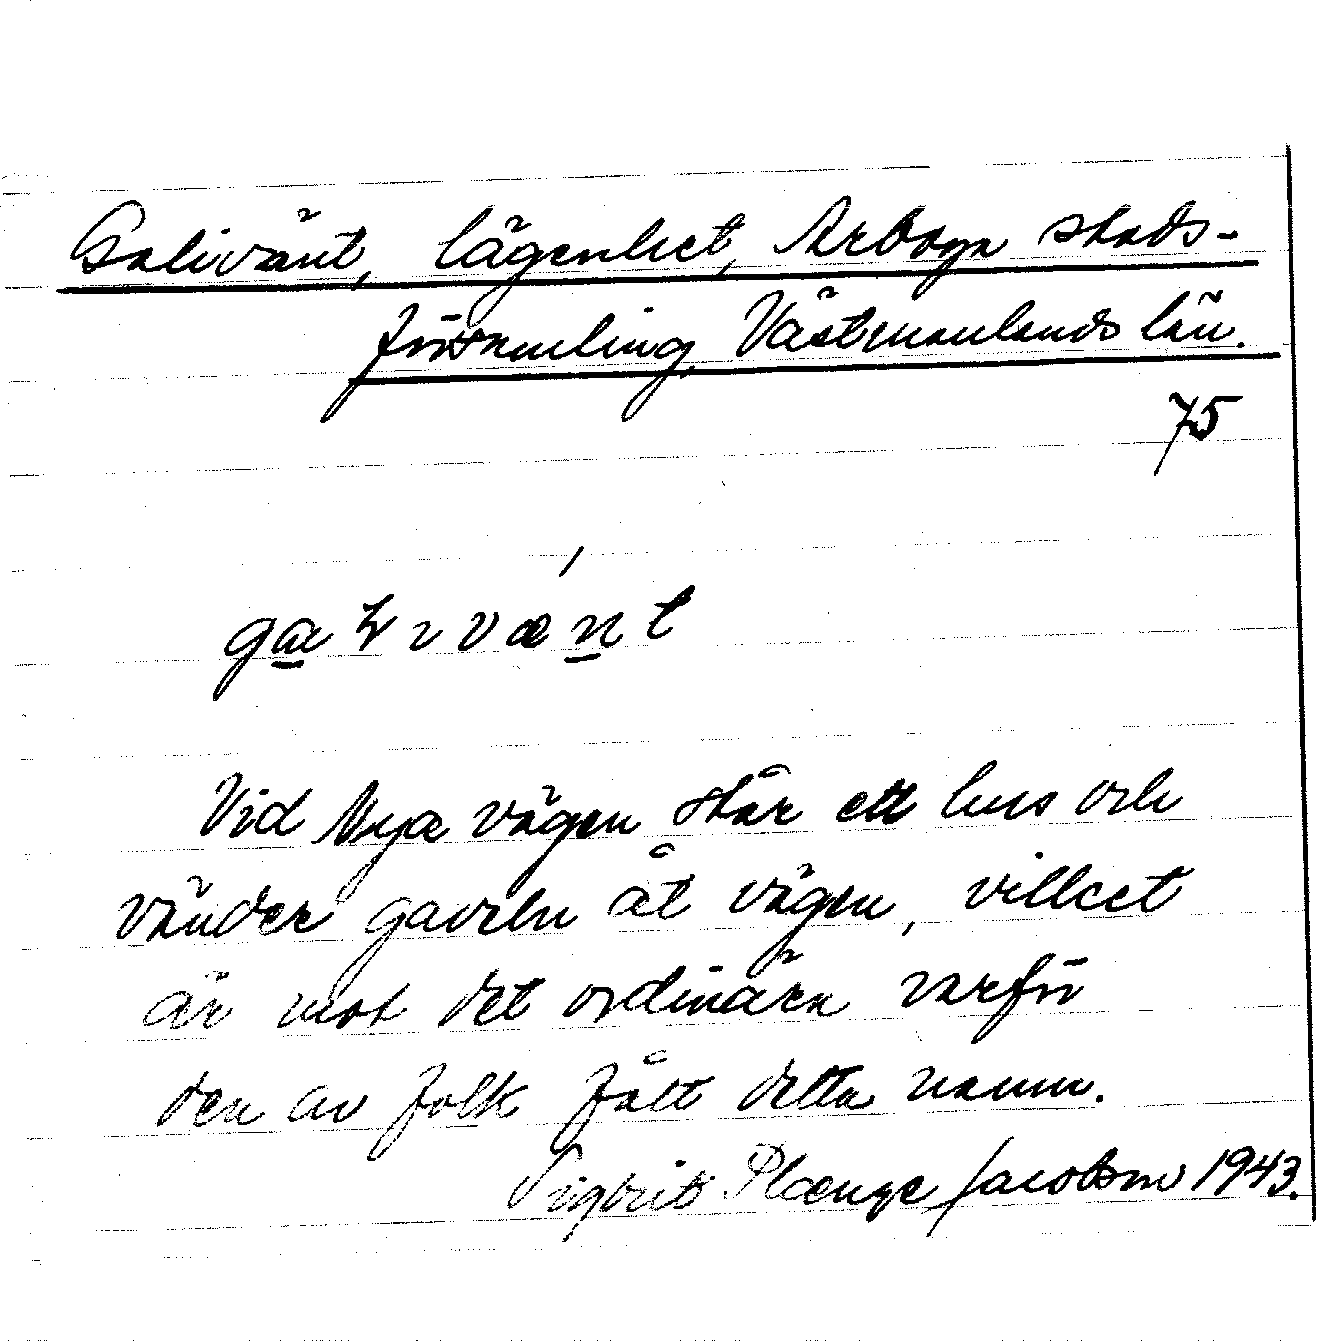 Galivänt, lägenhet, Arboga stads-
församling, Västmanlands län.
75
Vid Nya vägen står ett hus och
vänder gaveln åt vägen, villcet
är mot det ordinära varför
den av folk fått detta namn.
Sigbrit Plænge Jacobson 1943.